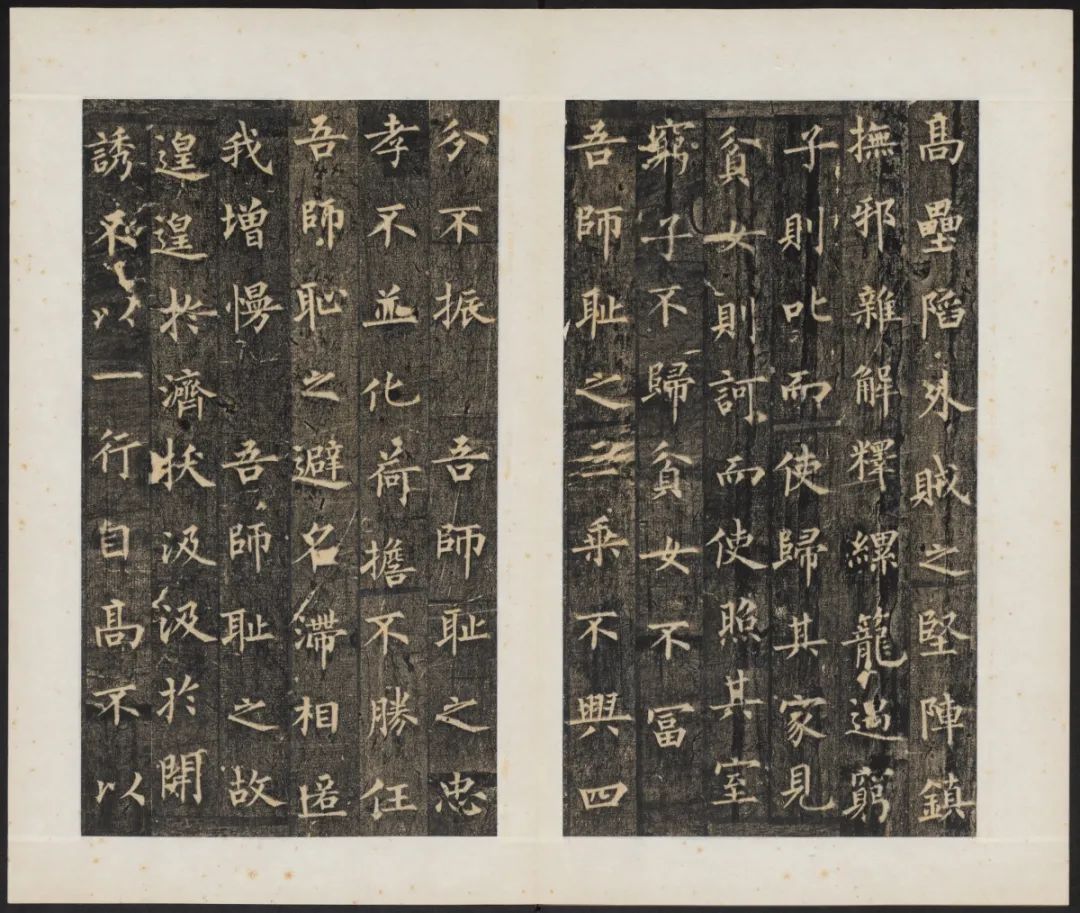 高壘陷外賊之堅陣鎮
撫邪雜解釋縲籠遇窮
子則叱而使歸其家見
貧女則訶而使照其室
窮子不歸貧女不冨
吾師恥之三乘不興四
分不振吾師耻之忠
孝不並化荷擔不勝任
吾師恥之避名滯相匿
我增慢吾師耻之故
遑遑於濟狀汲汲於開
誘不以一行自高不以